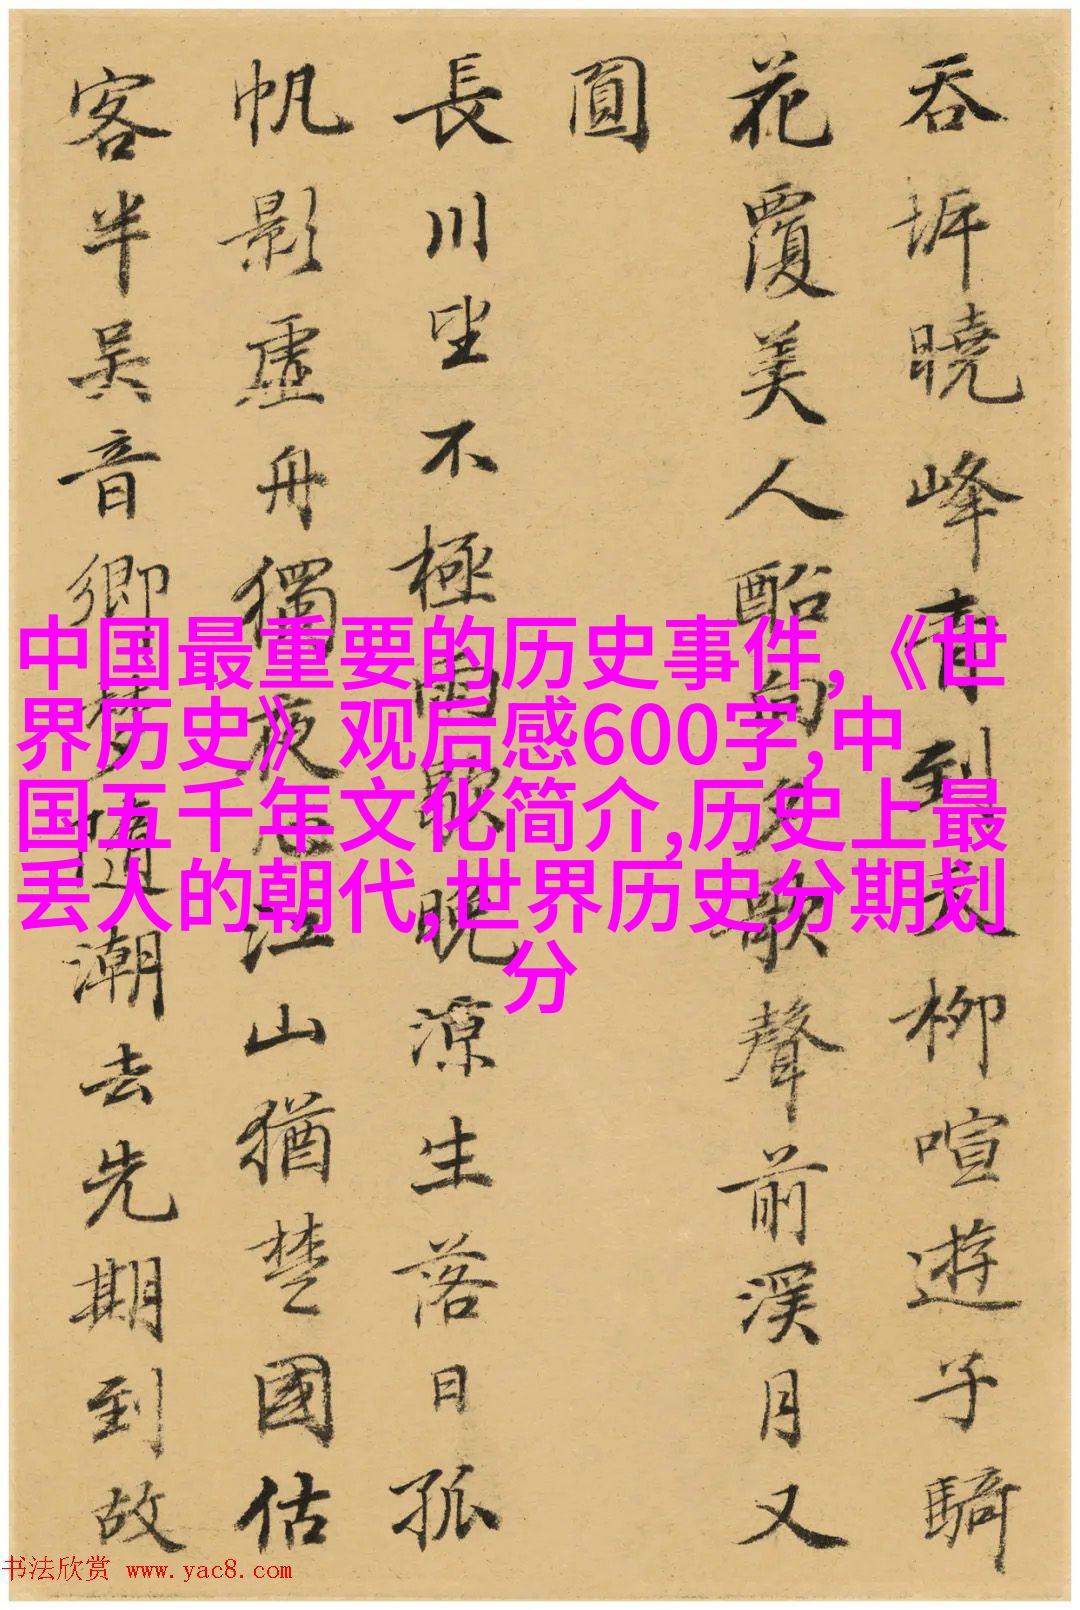 吞坼曉峰青到柳喧遊子騎
花覆美人船向夕歌聲前溪月又
圓
長川坐不極雨歇晚涼生落日孤
帆影虛舟獨夜心江山猶楚國估
客半吳音鄉夢隨潮去先期到故
中国最重要的历史事件,《世
界历史》观后感600字,中
国五千年文化简介,历史上最
丢人的朝代,世界历史分期划
分
书法欣赏 www.yac8.com